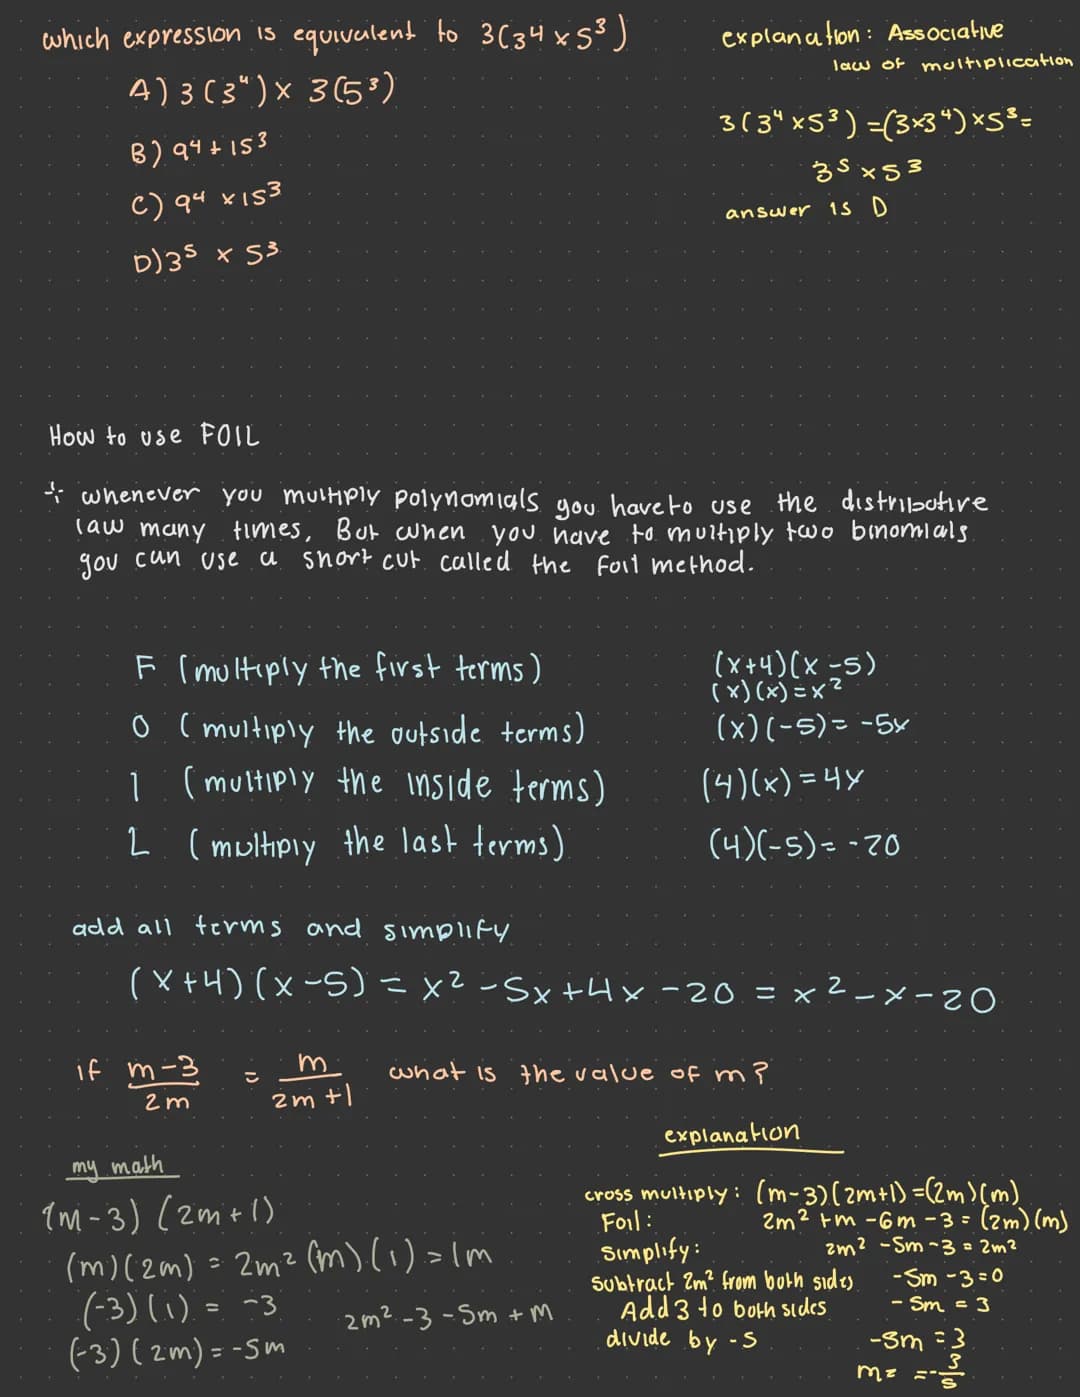 which expression is equivalent to 3(3⁴ x 5³)
A) 3(3⁴) x 3(5³)
B) 9⁴ + 15³
C) 9⁴ x 15³
D) 3⁵ x 5³
explanation: Associative
law of multiplication
3(3⁴ x 5³) = (3x3⁴) x 5³ =
3⁵ x 5³
answer is D
How to use FOIL
* whenever you multiply polynomials you have to use the distributive
law many times, But when you have to multiply two binomials
you can use a short cut called the Foil method.
F (multiply the first terms)
(x+4)(x-5)
(x)(x) = x²
O (multiply the outside terms)
(x)(-5) = -5x
I (multiply the inside terms)
(4)(x) = 4x
L (multiply the last terms)
(4)(-5) = -20
add all terms and simplify
(x+4)(x-5) = x² - 5x + 4x - 20 = x² - x - 20
if m-3/2m = m/2m+1 what is the value of m?
my math
(m-3)(2m+1)
(m)(2m) = 2m² (m)(1) = 1m
(-3)(1) = -3
2m² - 3 - 5m + m
(-3)(2m) = -5m
explanation
cross multiply: (m-3)(2m+1) = (2m)(m)
Foil: 2m² + m - 6m - 3 = (2m)(m)
simplify: 2m² - 5m - 3 = 2m²
subtract 2m² from both sides -5m - 3 = 0
Add 3 to both sides -5m = 3
divide by -5 -5m = 3
m = = -3/5